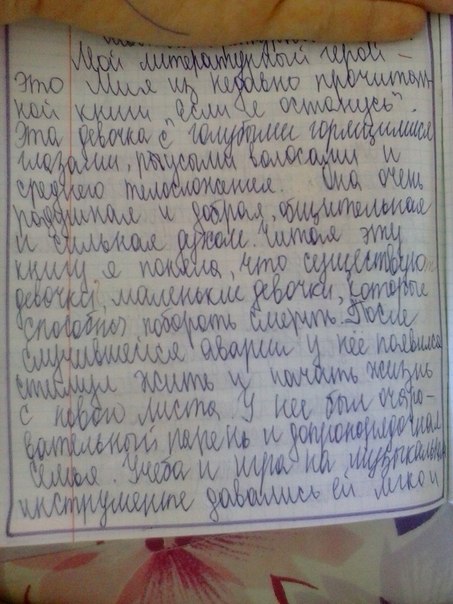 Мой литературный герой -
это Мия из недавно прочитан
ной книги "если я останусь".
Эта девочка с голубыми горящимися
глазами, русыми волосами и
среднего телосложения. Она очень
радушная и добрая, общительная
и сильная духом. Читая эту
книгу я поняла, что существую
девочки, маленькие девочки, которые
способны побороть смерть. После
случившейся аварии у неё появился
стимул жить и начать жизнь
с нового листа. У нее был очаро-
вательный парень и добропорядочная
семья. Учеба и игра на музыкальном
инструменте давались ей легкой